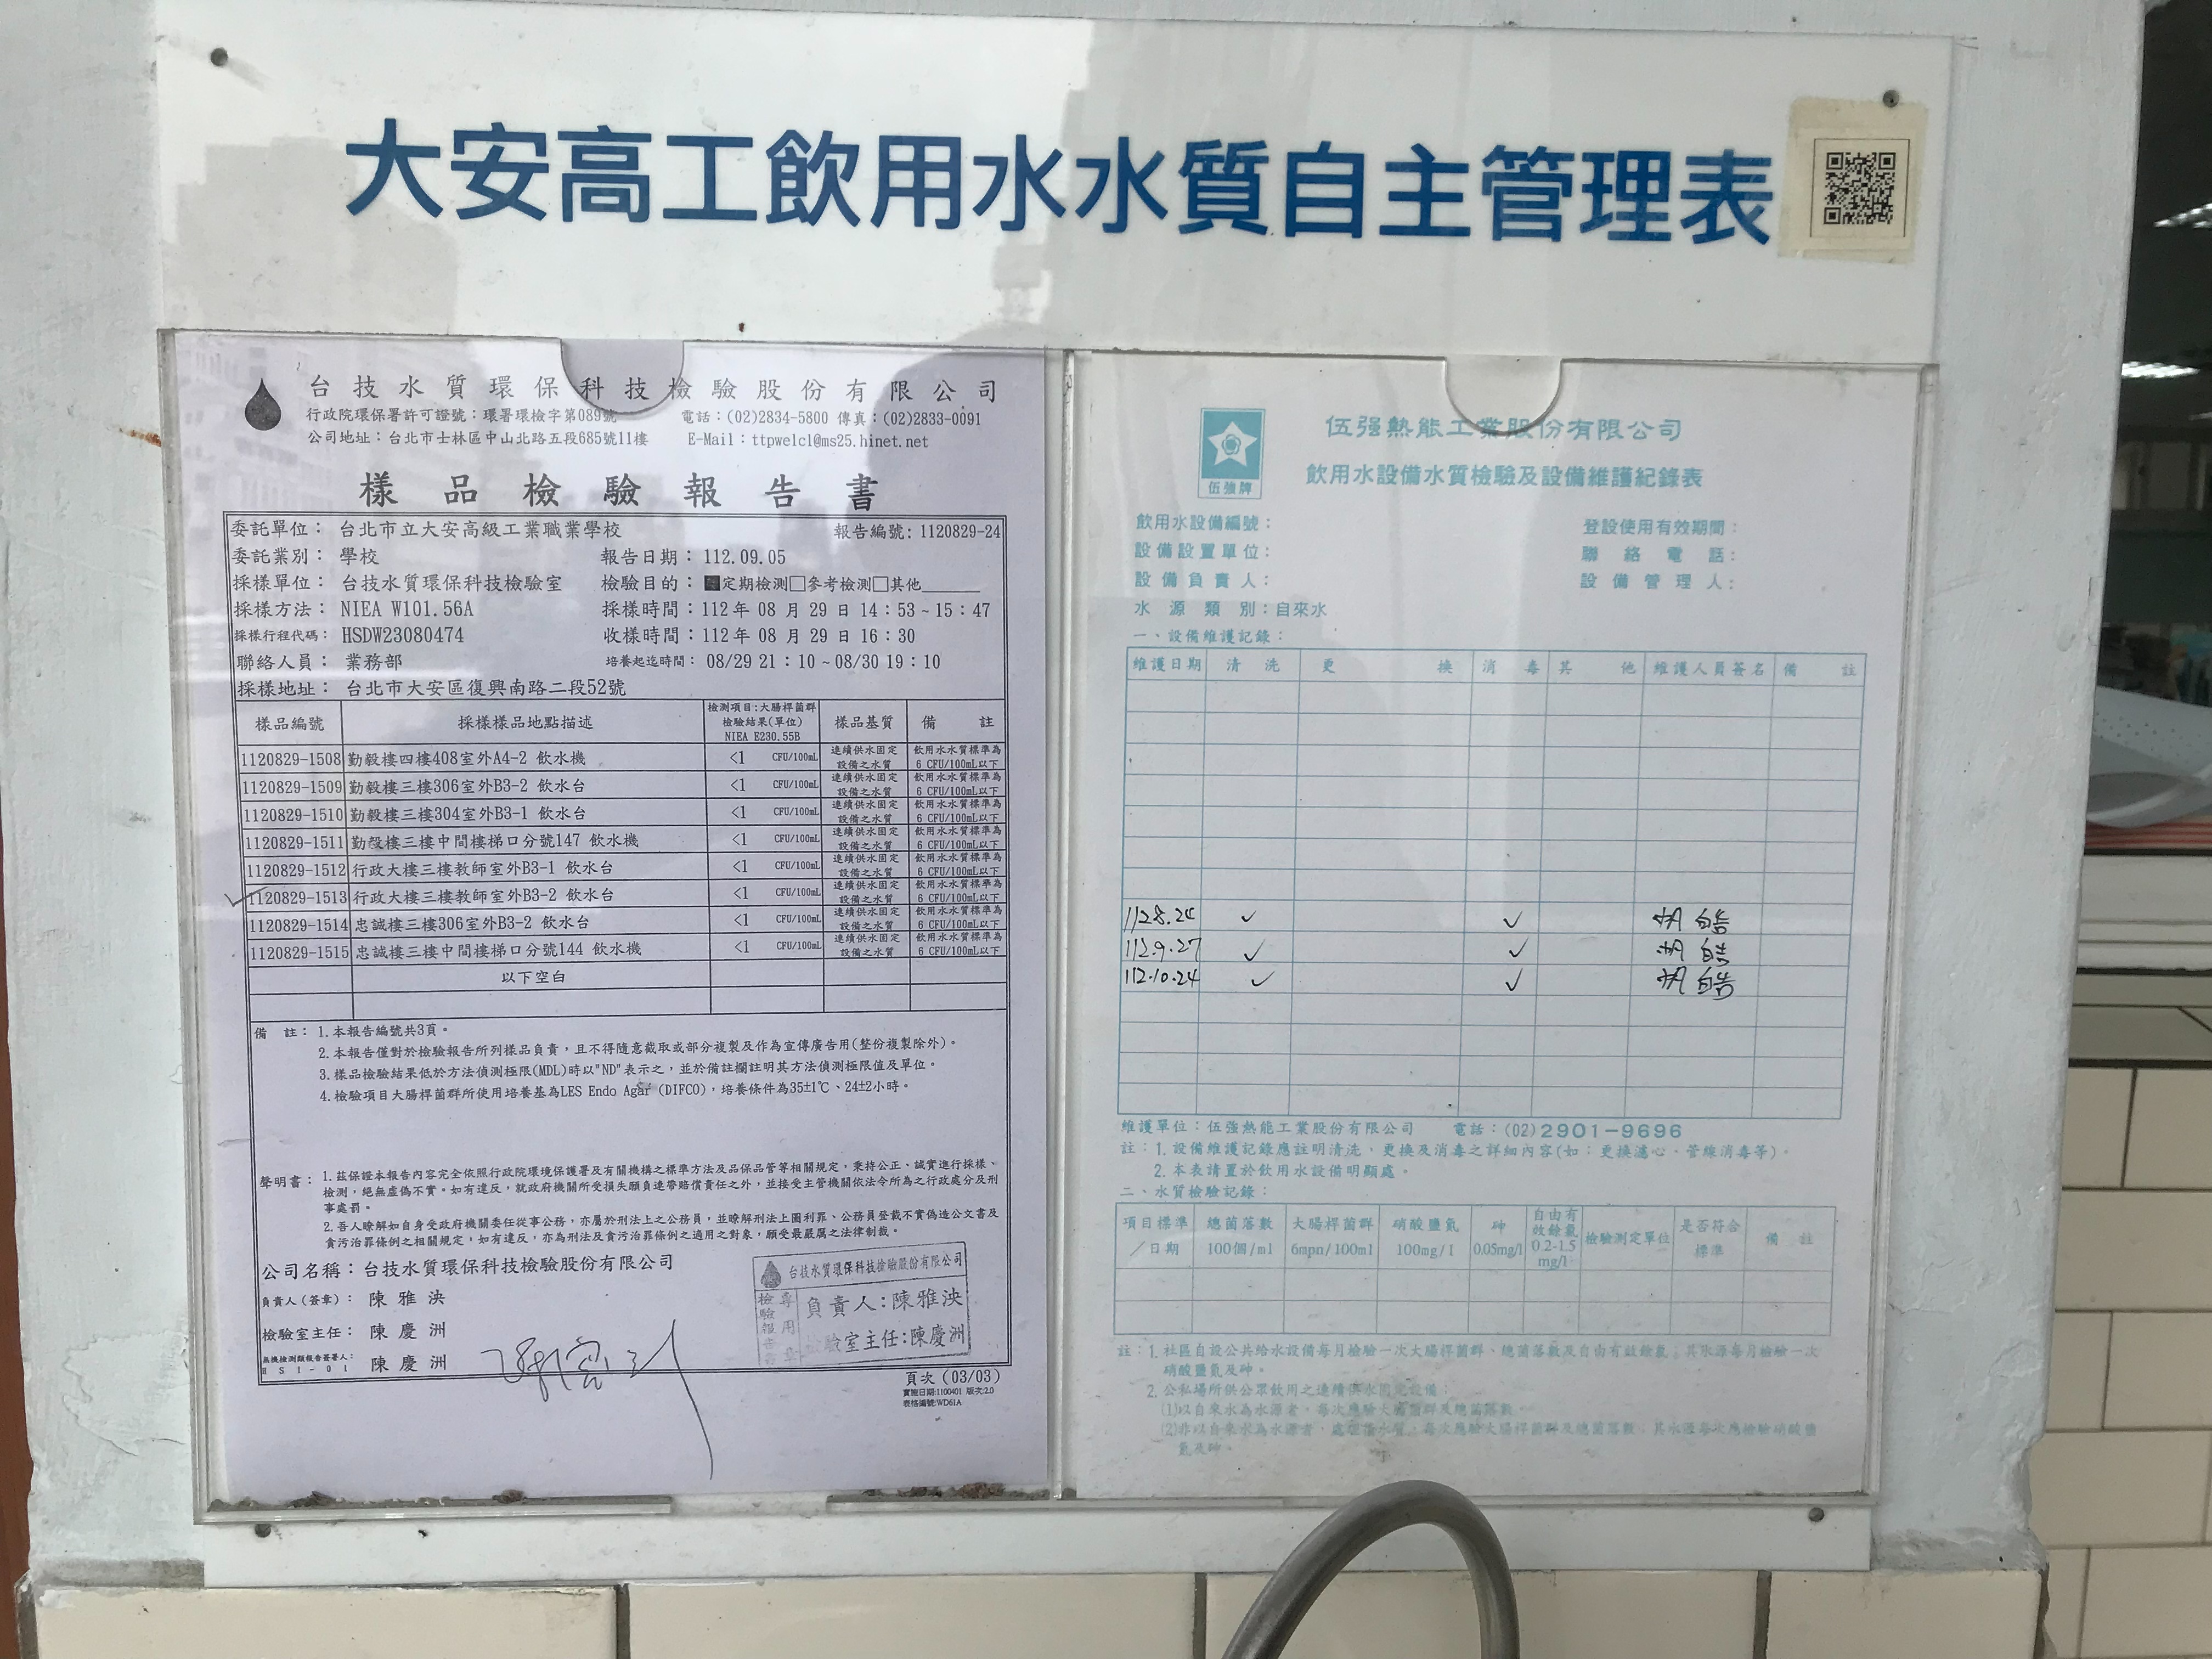 大安高工飲用水水質自主管理表
台技水質環保科技檢驗股份有限公司
行政院環保署許可證號：環署環檢字第089號 電話：(02)2834-5800 傳真：(02)2833-0091
公司地址：台北市士林區中山北路五段685號11樓 E-Mail：ttpwelcl@ms25.hinet.net
樣品檢驗報告書
委託單位： 台北市立大安高級工業職業學校 報告編號: 1120829-24
委託業別： 學校 報告日期：112.09.05
採樣單位： 台技水質環保科技檢驗室 檢驗目的：■定期檢測□參考檢測□其他
採樣方法： NIEA W101.56A 採樣時間：112年 08 月 29 日 14：53～15：47
採樣行程代碼： HSDW23080474 收樣時間：112年 08 月 29 日 16：30
聯絡人員： 業務部 培養起迄時間： 08/29 21：10～08/30 19：10
採樣地址： 台北市大安區復興南路二段52號
樣品編號 採樣樣品地點描述 檢測項目:大腸桿菌群 檢驗結果(單位) NIEA E230.55B 樣品基質 備註
1120829-1508 勤毅樓四樓408室外A4-2 飲水機 <1 CFU/100mL 連續供水固定設備之水質 飲用水水質標準為6 CFU/100mL以下
1120829-1509 勤毅樓三樓306室外B3-2 飲水台 <1 CFU/100mL 連續供水固定設備之水質 飲用水水質標準為6 CFU/100mL以下
1120829-1510 勤毅樓三樓304室外B3-1 飲水台 <1 CFU/100mL 連續供水固定設備之水質 飲用水水質標準為6 CFU/100mL以下
1120829-1511 勤毅樓三樓中間樓梯口分號147 飲水機 <1 CFU/100mL 連續供水固定設備之水質 飲用水水質標準為6 CFU/100mL以下
1120829-1512 行政大樓三樓教師室外B3-1 飲水台 <1 CFU/100mL 連續供水固定設備之水質 飲用水水質標準為6 CFU/100mL以下
1120829-1513 行政大樓三樓教師室外B3-2 飲水台 <1 CFU/100mL 連續供水固定設備之水質 飲用水水質標準為6 CFU/100mL以下
1120829-1514 忠誠樓三樓306室外B3-2 飲水台 <1 CFU/100mL 連續供水固定設備之水質 飲用水水質標準為6 CFU/100mL以下
1120829-1515 忠誠樓三樓中間樓梯口分號144 飲水機 <1 CFU/100mL 連續供水固定設備之水質 飲用水水質標準為6 CFU/100mL以下
以下空白
備註：1.本報告編號共3頁。
2.本報告僅對於檢驗報告所列樣品負責，且不得隨意截取或部分複製及作為宣傳廣告用(整份複製除外)。
3.樣品檢驗結果低於方法偵測極限(MDL)時以"ND"表示之，並於備註欄註明其方法偵測極限值及單位。
4.檢驗項目大腸桿菌群所使用培養基為LES Endo Agar (DIFCO)，培養條件為35±1℃、24±2小時。
聲明書： 1.茲保證本報告內容完全依照行政院環境保護署及有關機構之標準方法及品保品管等相關規定，秉持公正、誠實進行採樣、
檢測，絕無虛偽不實。如有違反，就政府機關所受損失願負連帶賠償責任之外，並接受主管機關依法令所為之行政處分及刑
事處罰。
2.吾人瞭解如自身受政府機關委任從事公務，亦屬於刑法上之公務員，並瞭解刑法上圖利罪、公務員登載不實偽造公文書及
貪污治罪條例之相關規定，如有違反，亦為刑法及貪污治罪條例之適用之對象，願受最嚴厲之法律制裁。
公司名稱：台技水質環保科技檢驗股份有限公司
負責人(簽章)： 陳雅泱
檢驗室主任： 陳慶洲
無機檢測類報告簽署人： HSI-01 陳慶洲
台技水質環保科技檢驗股份有限公司
檢驗報告書專用章
負責人:陳雅泱
檢驗室主任:陳慶洲
頁次 (03/03)
實施日期:1100401 版次:2.0
表格編號:WD61A
伍強牌
伍强熱能工業股份有限公司
飲用水設備水質檢驗及設備維護紀錄表
飲用水設備編號： 登設使用有效期間：
設備設置單位： 聯絡電話：
設備負責人： 設備管理人：
水源類別：自來水
一、設備維護記錄：
維護日期 清洗 更換 消毒 其他 維護人員簽名 備註
112.8.24 ✓ ✓
112.9.27 ✓ ✓
112.10.24 ✓ ✓
維護單位：伍強熱能工業股份有限公司 電話：(02)2901-9696
註：1.設備維護記錄應註明清洗，更換及消毒之詳細內容(如：更換濾心、管線消毒等)。
2.本表請置於飲用水設備明顯處。
二、水質檢驗記錄：
項目標準／日期 總菌落數 100個/ml 大腸桿菌群 6mpn/100ml 硝酸鹽氮 100mg/l 砷 0.05mg/l 自由有效餘氯 0.2-1.5 mg/l 檢驗測定單位 是否符合標準 備註
註：1.社區自設公共給水設備每月檢驗一次大腸桿菌群、總菌落數及自由有效餘氯；其水源每月檢驗一次
硝酸鹽氮及砷。
2.公私場所供公眾飲用之連續供水固定設備：
(1)以自來水為水源者，每次應驗大腸桿菌群及總菌落數。
(2)非以自來水為水源者，處理後水質，每次應驗大腸桿菌群及總菌落數；其水源每次應檢驗硝酸鹽
氮及砷。